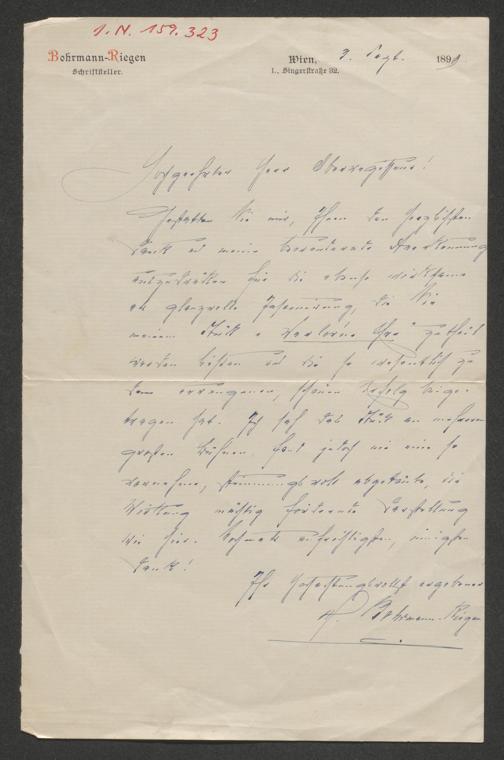 I.N. 159.323
Bohrmann-Riegen
Schriftsteller.
Wien, 3. Sept. 1891
I., Singerstraße 32.
Sehr geehrter Herr Oberregisseur!
Gestatten Sie mir, Ihnen den herzlichsten
Dank u. meine bewundernde Anerkennung
auszudrücken für die ebenso wirksame
als glanzvolle Inscenirung, die Sie
meinem Stück „Verlorene Ehre“ zutheil
werden ließen und die so wesentlich zu
dem errungenen, schönen Erfolg beige-
tragen hat. Ich sah das Stück an mehreren
großen Bühnen, fand jedoch nie eine so
vornehme, stimmungsvoll abgetönte, die
Wirkung mächtig fördernde Darstellung
wie hier. Nochmals aufrichtigsten, innigsten
Dank!
Ihr hochachtungsvollst ergebener
H. Bohrmann-Riegen